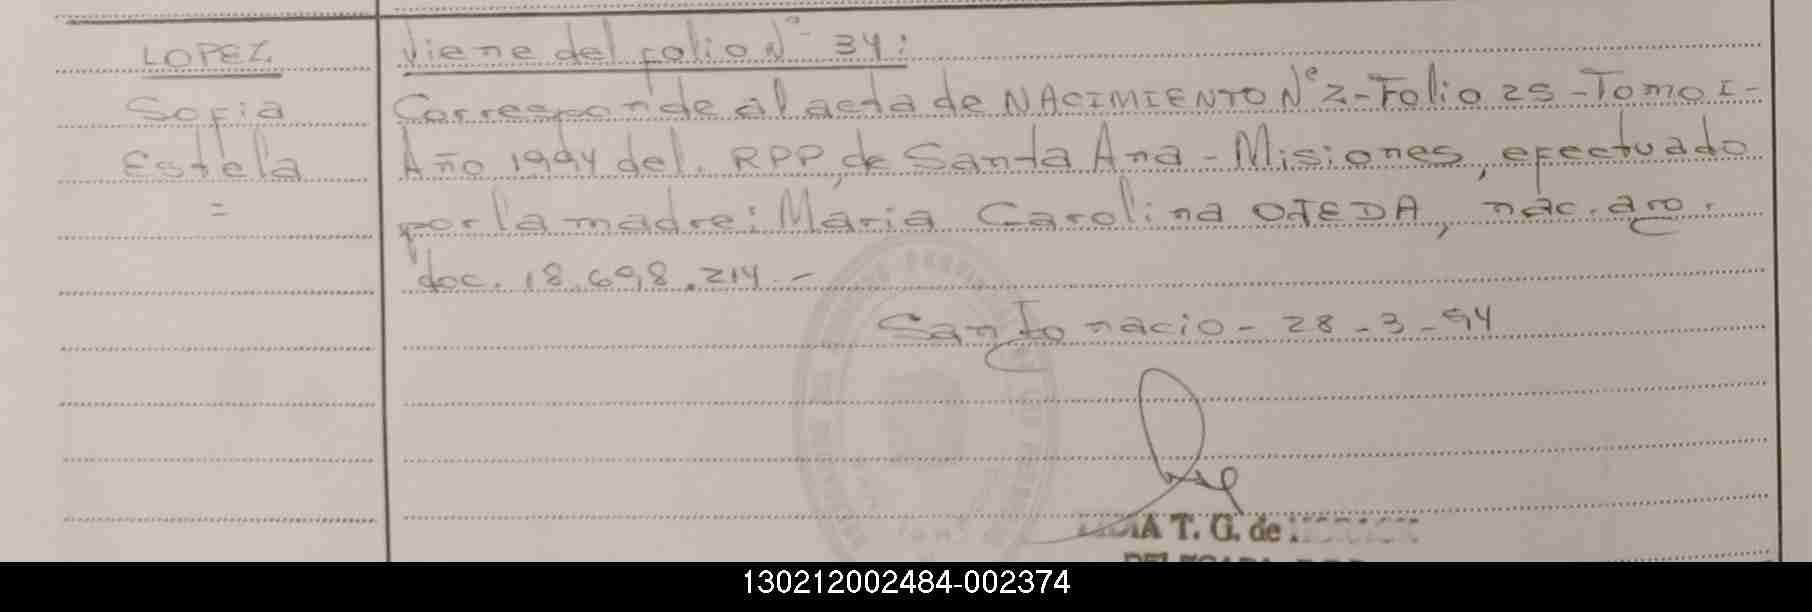 LOPEZ
Sofia
Estela
=
Viene del folio N° 34:
Corresponde al acta de NACIMIENTO N° 2-Folio 25-Tomo I-
Año 1994 del. RPP, de Santa Ana - Misiones, efectuado
por la madre: Maria Carolina OJEDA, nac. arg.
doc. 18.698.214.-
San Ignacio - 28-3-94
A T. G. de
130212002484-002374